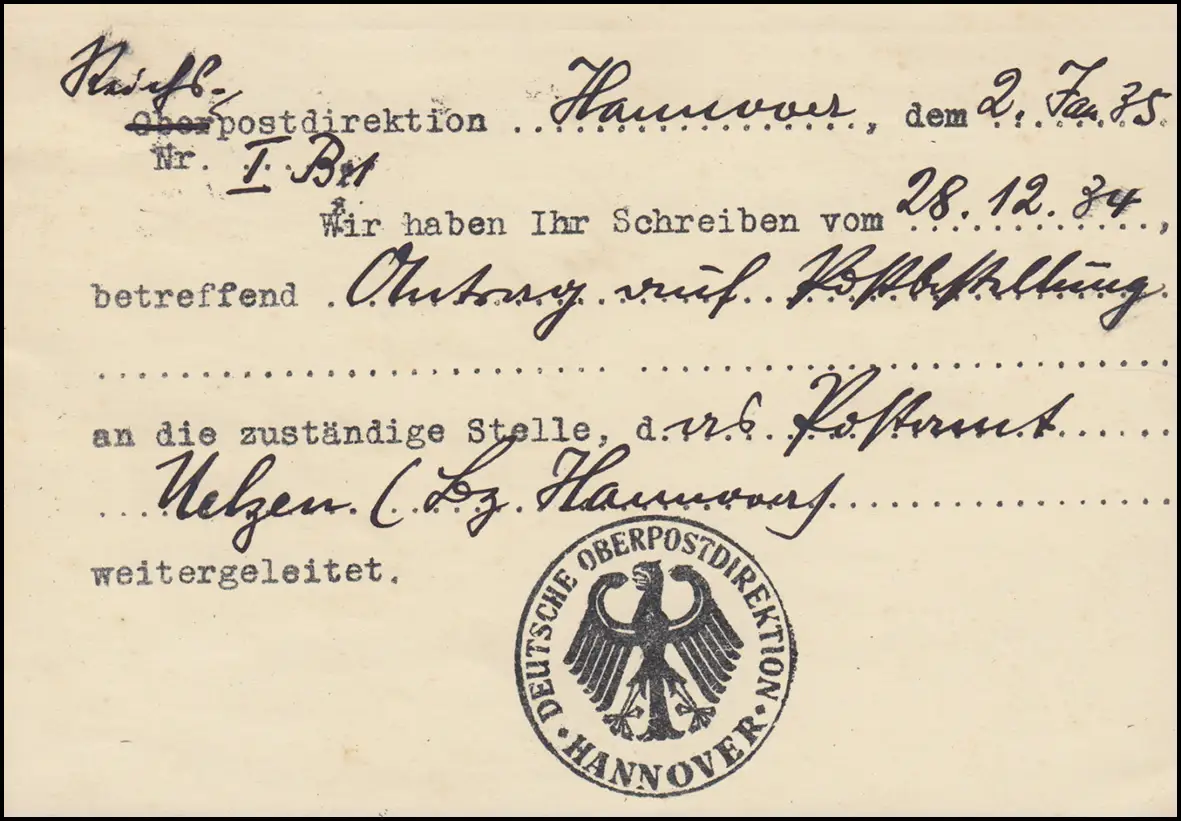 Reichs-
Oberpostdirektion Hannover, dem 2. Jan 35
Nr. I B
Wir haben Ihr Schreiben vom 28.12.34,
betreffend Antrag auf Postbestellung
an die zuständige Stelle, das Postamt
Uelzen (Bz Hannover)
weitergeleitet.
DEUTSCHE OBERPOSTDIREKTION
HANNOVER